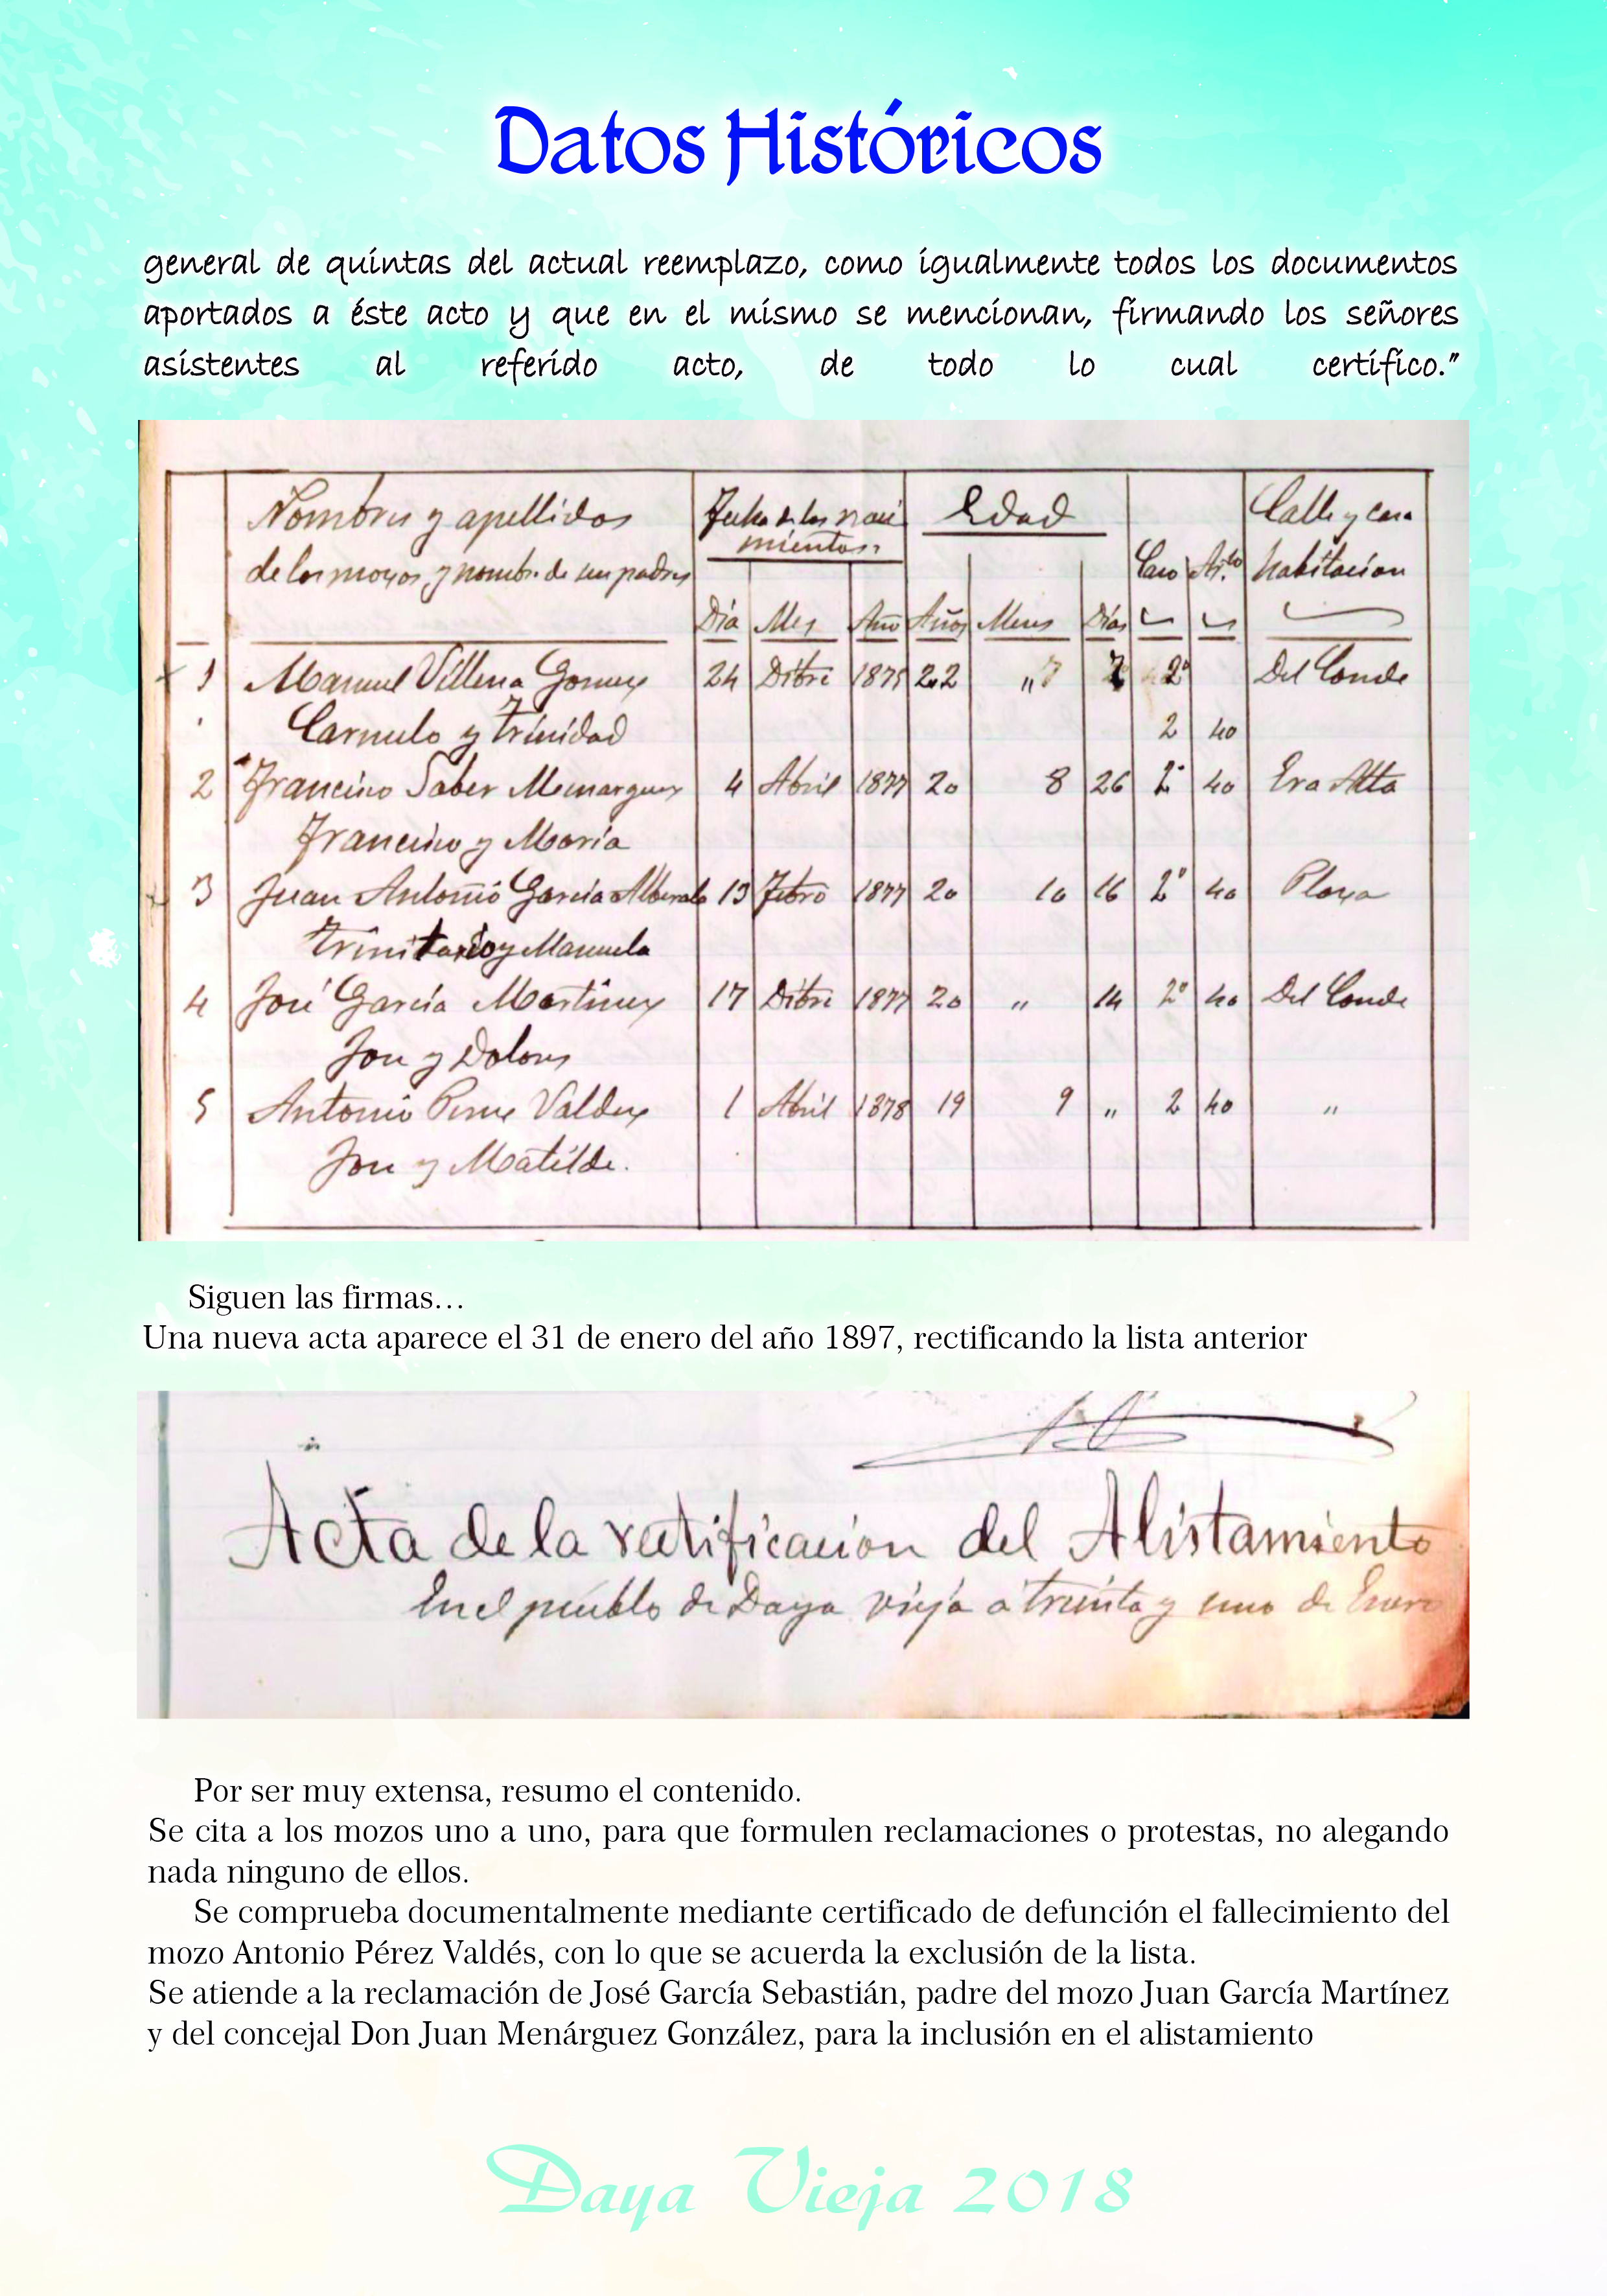 Datos Históricos
general de quintas del actual reemplazo, como igualmente todos los documentos
aportados a éste acto y que en el mismo se mencionan, firmando los señores
asistentes al referido acto, de todo lo cual certifico."
Nombres y apellidos
de los mozos y nombre de sus padres
Fecha de los naci
mientos
Edad
Calle y casa
habitacion
Día Mes Año Años Meses Días
1 Manuel Villena Gomez 24 Dibre 22 2º Del Conde
Carmelo y Trinidad 2 40
2 Francisco Saber Menarguez 4 Abril 1877 20 8 26 2º 40 Era Alta
Francisco y Maria
3 Juan Antonio Garcia 1877 20 10 16 2º 40 Plaza
Trinitario y Manuela
4 José García Martinez 17 Dibre 1877 20 " 14 2º 40 Del Conde
Jose y Dolores
5 Antonio Perez Valdes 1 Abril 1878 19 9 " 2 40 "
Jose y Matilde.
Siguen las firmas...
Una nueva acta aparece el 31 de enero del año 1897, rectificando la lista anterior
Acta de la rectificacion del Alistamiento
En el pueblo de Daya vieja a treinta y uno de Enero
Por ser muy extensa, resumo el contenido.
Se cita a los mozos uno a uno, para que formulen reclamaciones o protestas, no alegando
nada ninguno de ellos.
Se comprueba documentalmente mediante certificado de defunción el fallecimiento del
mozo Antonio Pérez Valdés, con lo que se acuerda la exclusión de la lista.
Se atiende a la reclamación de José García Sebastián, padre del mozo Juan García Martínez
y del concejal Don Juan Menárguez González, para la inclusión en el alistamiento
Daya Vieja 2018